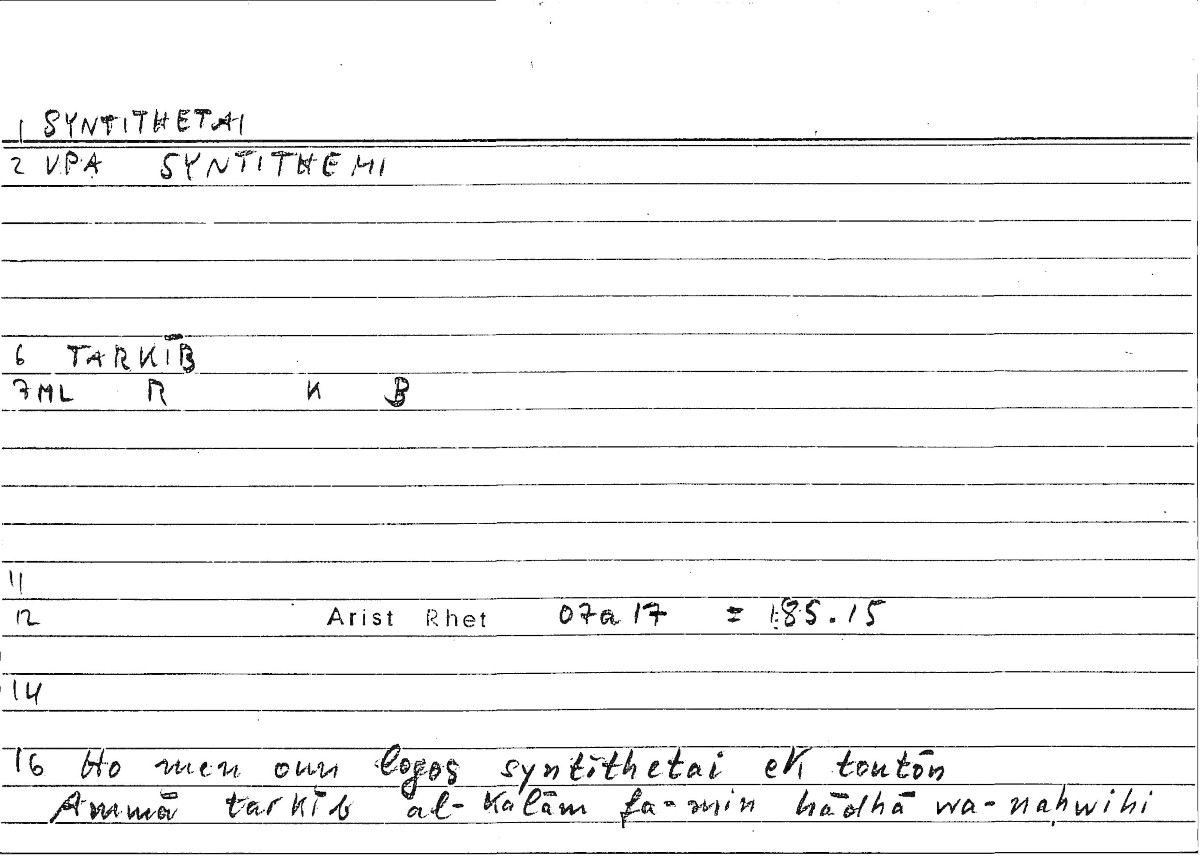 1 SYNTITHETAI
2 VPA SYNTITHEMI
6 TARKĪB
7 ML R K B
11
12 Arist Rhet 07a17 = 185.15
14
16 Ho men oun logos syntithetai ek toutōn
Ammā tarkīb al-kalām fa-min hādhā wa-naḥwihi